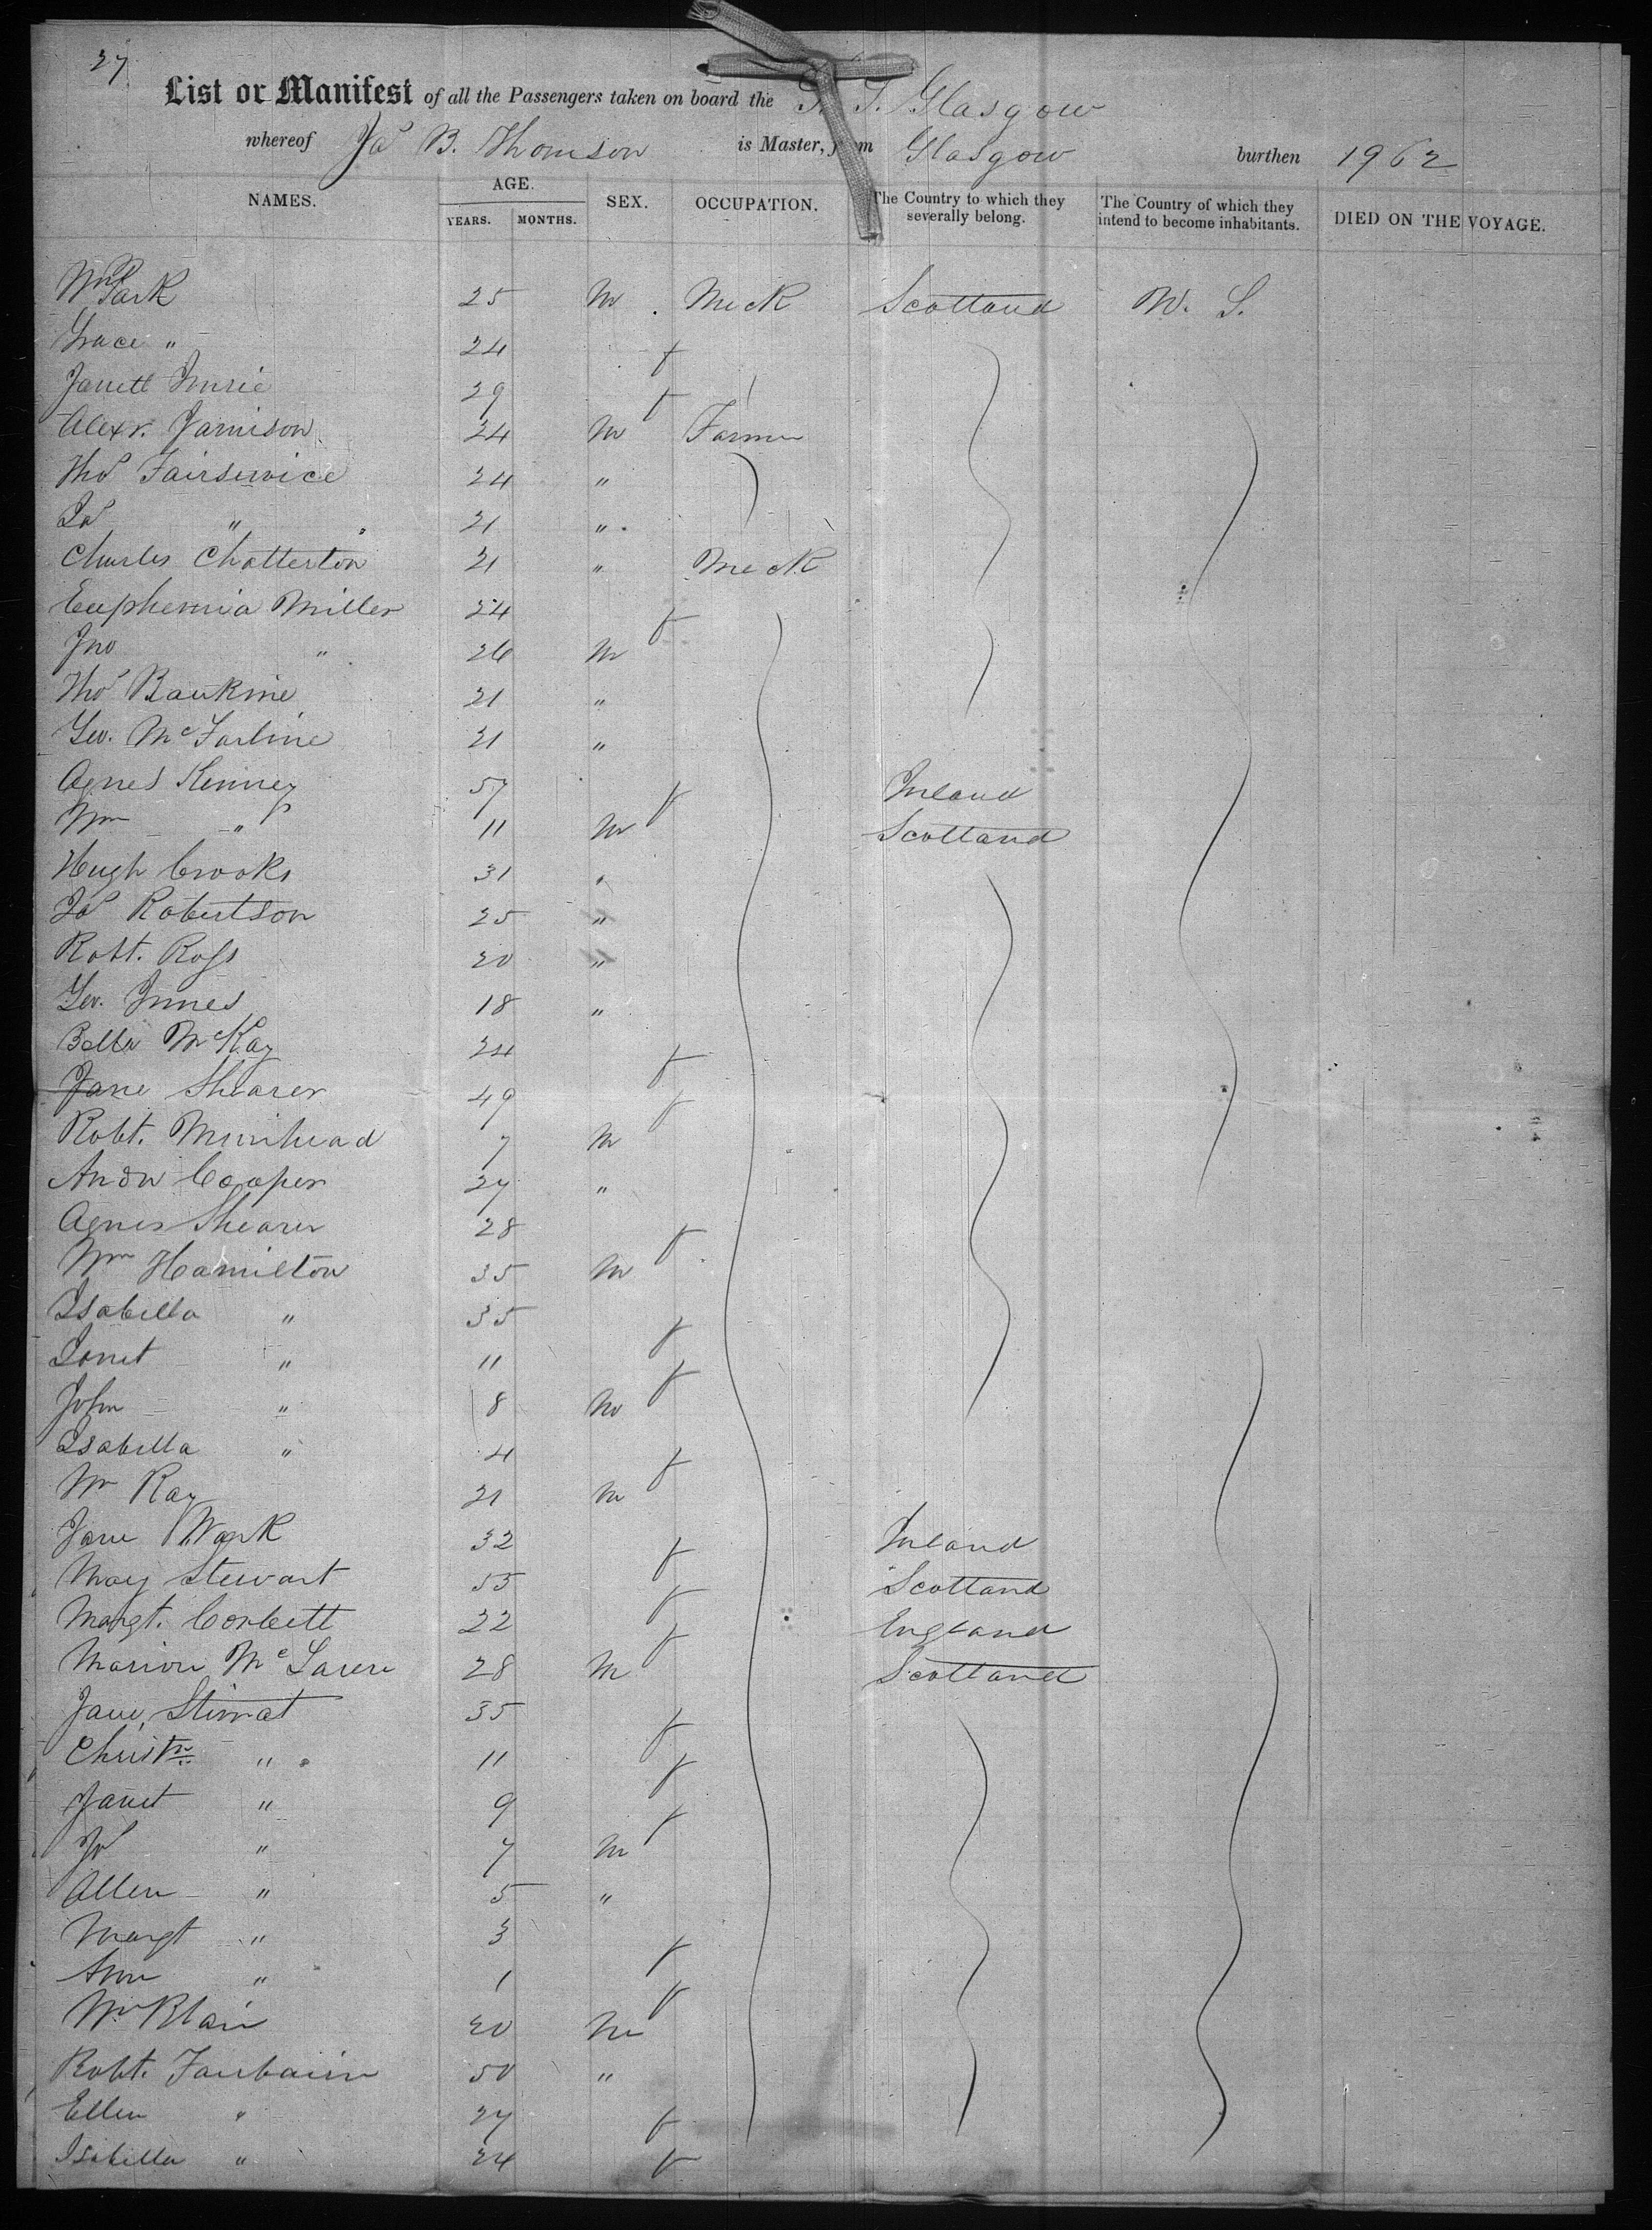 27
List or Manifest of all the Passengers taken on board the S. S. Glasgow
whereof Jas B. Thomson is Master, from Glasgow burthen 1962
NAMES. AGE. YEARS. MONTHS. SEX. OCCUPATION. The Country to which they severally belong. The Country of which they intend to become inhabitants. DIED ON THE VOYAGE.
Wm Park 25 M Meck Scotland W. S.
Grace " 24 f
Janett Imrie 29 f
Alexr. Jamison 24 M Farmer
Thos Fairservice 24 "
Jas " 21 "
Charles Chatterton 21 " Meck
Euphemia Miller 24 f
Jno " 26 M
Thos Rankine 21 "
Geo. McFarline 21 "
Agnes Kenney 57 f Ireland
Wm " 11 M Scotland
Hugh Crooks 31 "
Jas Robertson 25 "
Robt. Ross 20 "
Geo. Innes 18 "
Bella McKay 24 f
Jane Shearer 49 f
Robt. Muirhead 7 M
Andw Cooper 27 "
Agnes Shearer 28 f
Wm Hamilton 35 M
Isabella " 35 f
Janet " 11 f
John " 8 M
Isabella " 4 f
Wm Ray 21 M
Jane Wark 32 f Ireland
May Stewart 55 f Scotland
Margt. Corbett 22 f England
Marion McLaren 28 M Scotland
Jane Stirrat 35 f
Christn " 11 f
Janet " 9 f
Js " 7 M
Allen " 5 "
Margt " 3 f
Ann " 1 f
Wm Blair 20 M
Robt. Fairbairn 50 "
Ellen " 27 f
Isabella " 24 f